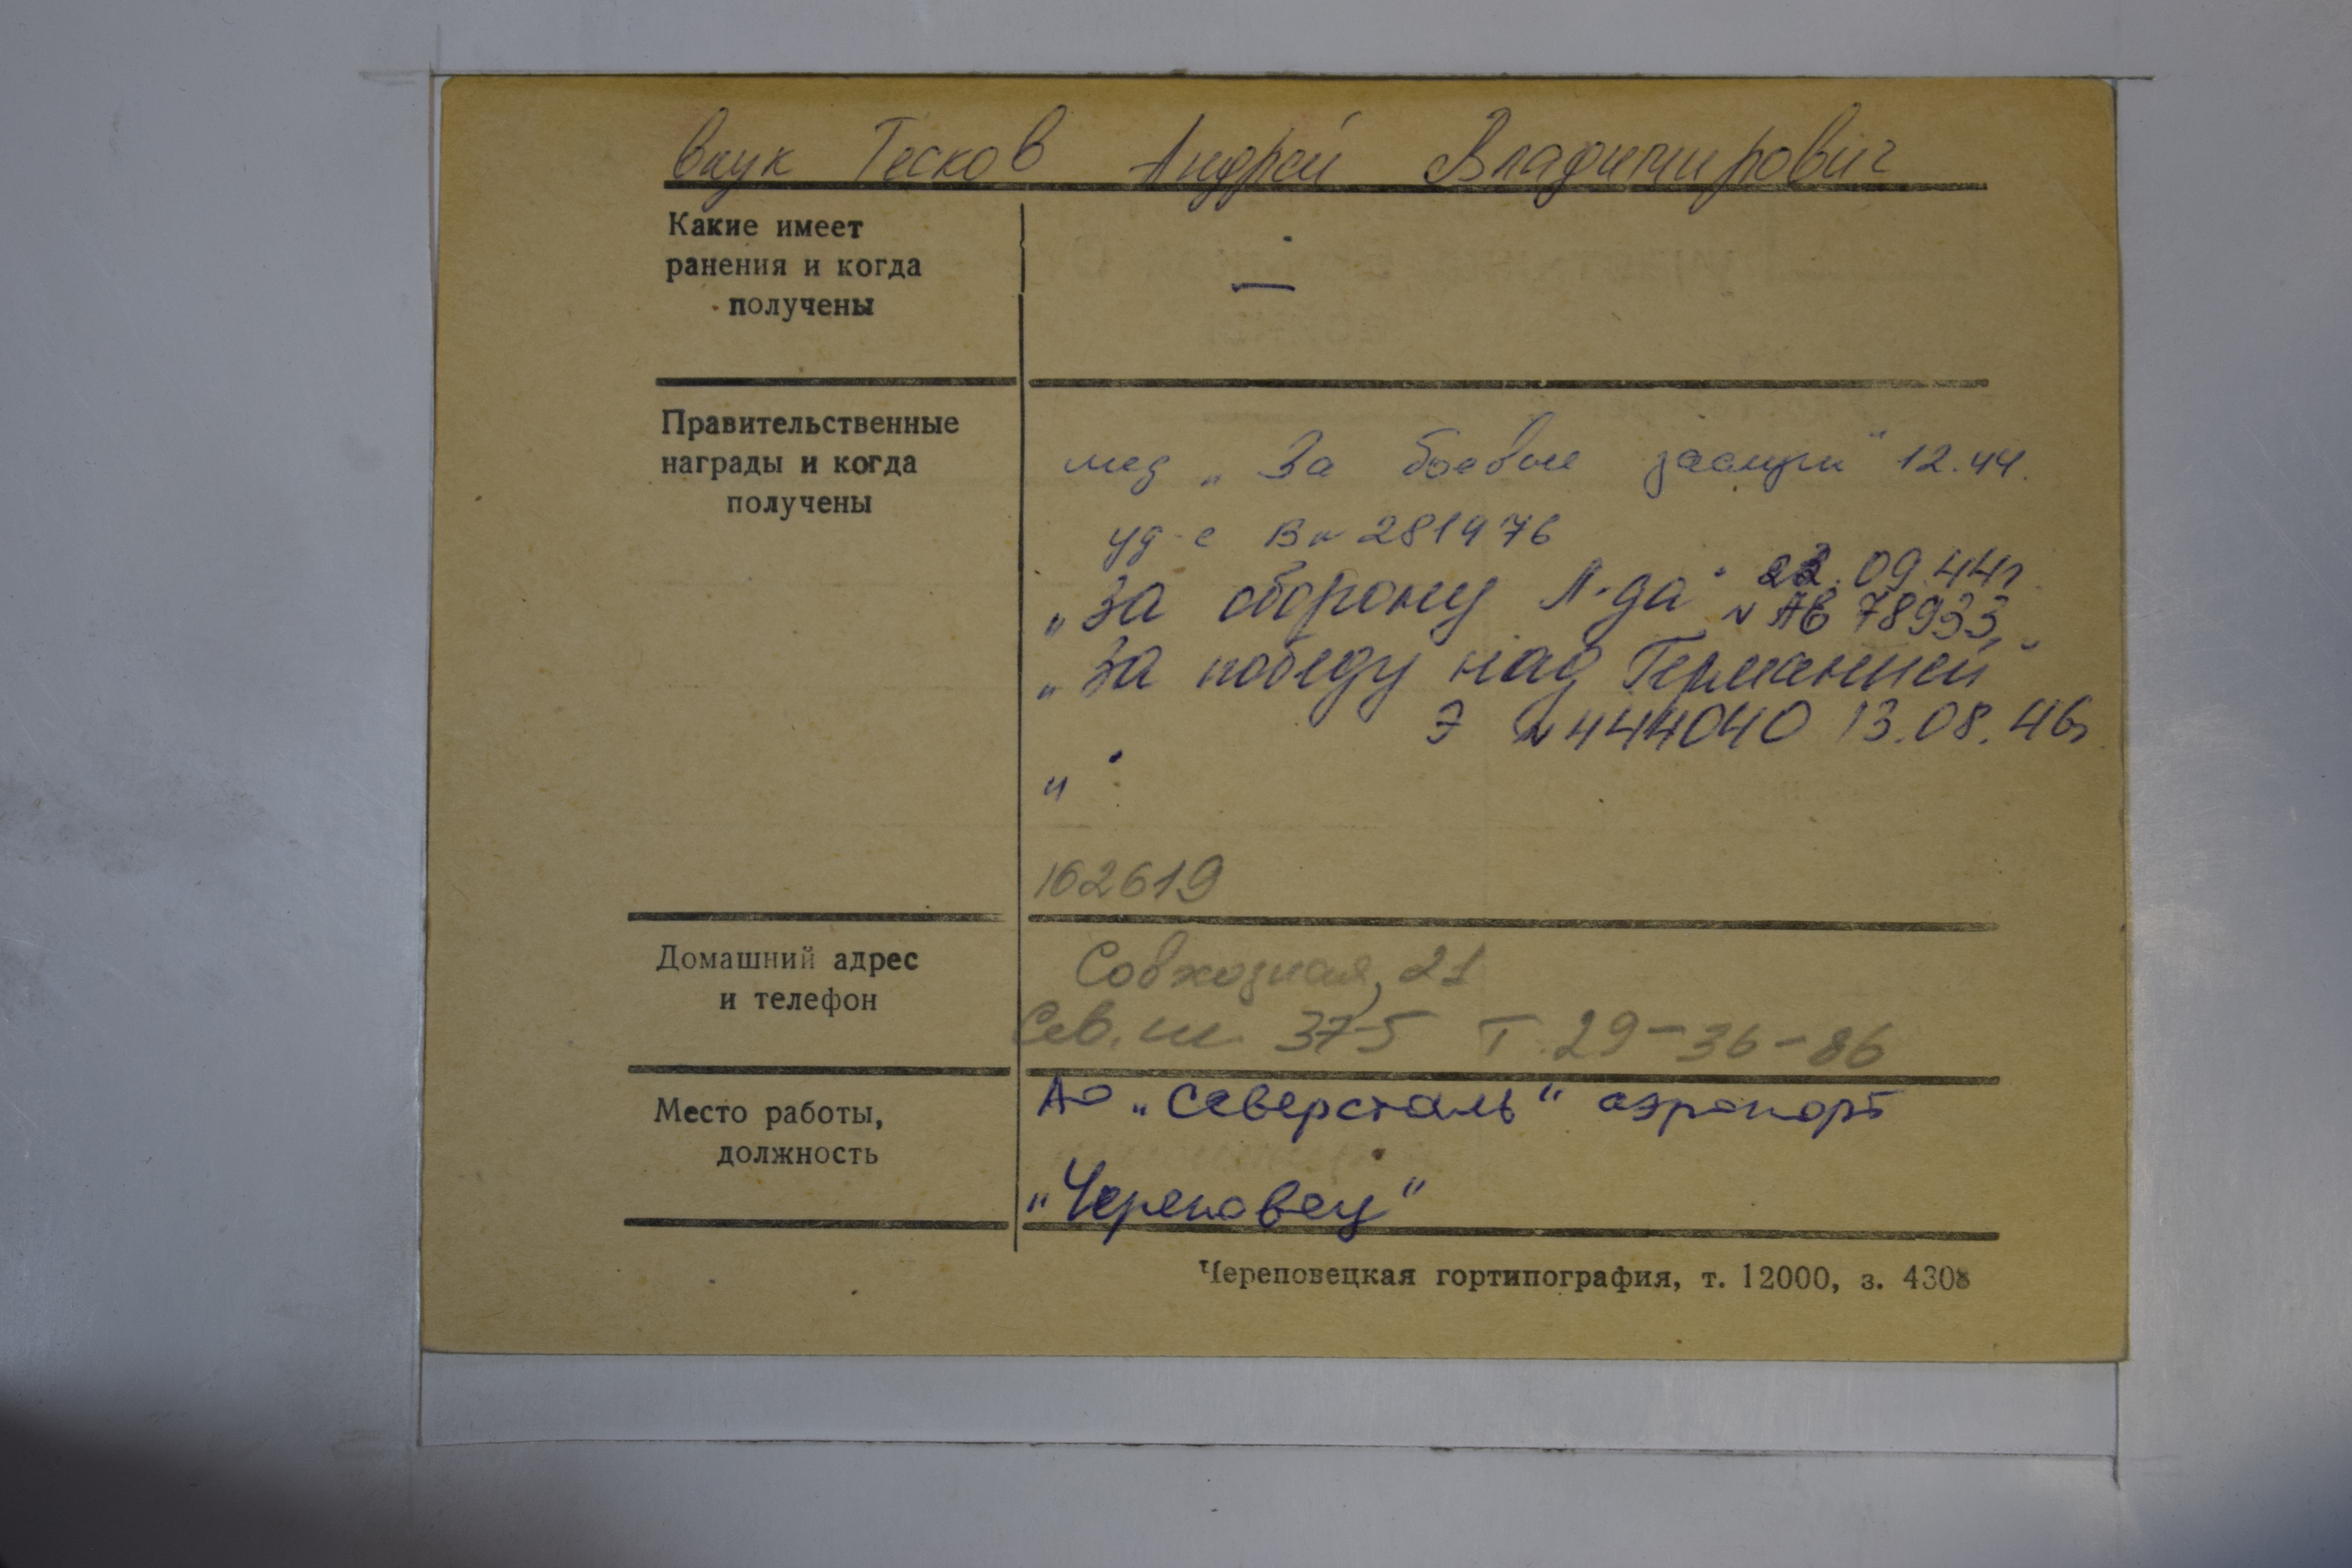 внук Тесков Андрей Владимирович
Какие имеет
ранения и когда
получены
—
Правительственные
награды и когда
получены
мед „За боевые заслуги“ 12.44.
уд-е В № 281976
„За оборону Л-да“ 22.09.44г.
№ АВ 78933
„За победу над Германией“
Э № 444040 13.08.46г.
„ “
162619
Домашний адрес
и телефон
Совхозная, 21
Сев. ш. 37-5 Т. 29-36-86
Место работы,
должность
АО „Северсталь“ аэропорт
„Череповец“
Череповецкая гортипография, т. 12000, з. 4308